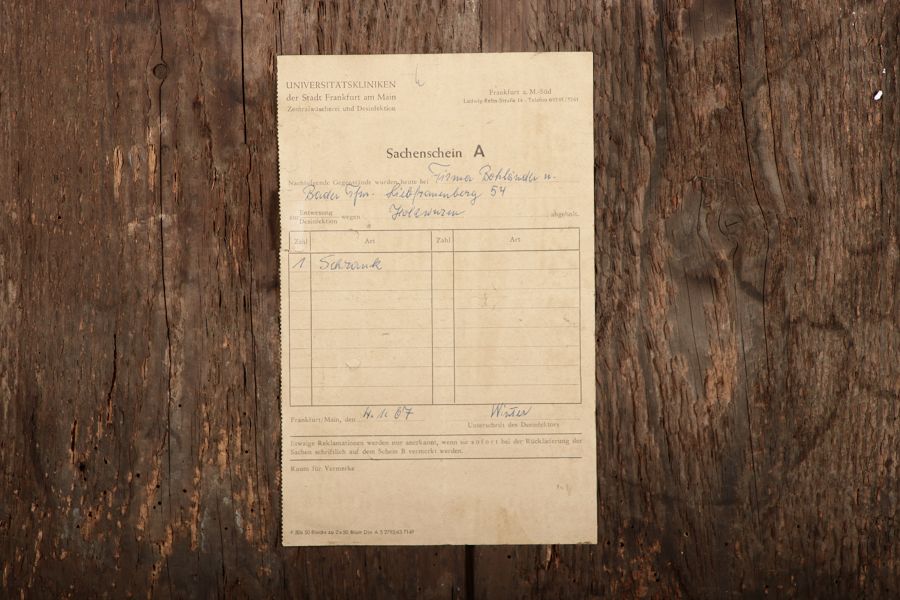 UNIVERSITÄTSKLINIKEN
der Stadt Frankfurt am Main
Zentralwäscherei und Desinfektion
Frankfurt a. M.-Süd
Ludwig-Rehn-Straße 14 - Telefon
Sachenschein A
Nachstehende Gegenstände wurden heute bei Firma u.
Bader Ffm. 54
zur Entwesung
Desinfektion wegen Holzwurm abgeholt.
Zahl Art Zahl Art
1 Schrank
Frankfurt/Main, den 67 Winter
Unterschrift des Desinfektors
Etwaige Reklamationen werden nur anerkannt, wenn sie sofort bei der Rücklieferung der
Sachen schriftlich auf dem Schein B vermerkt werden.
Raum für Vermerke